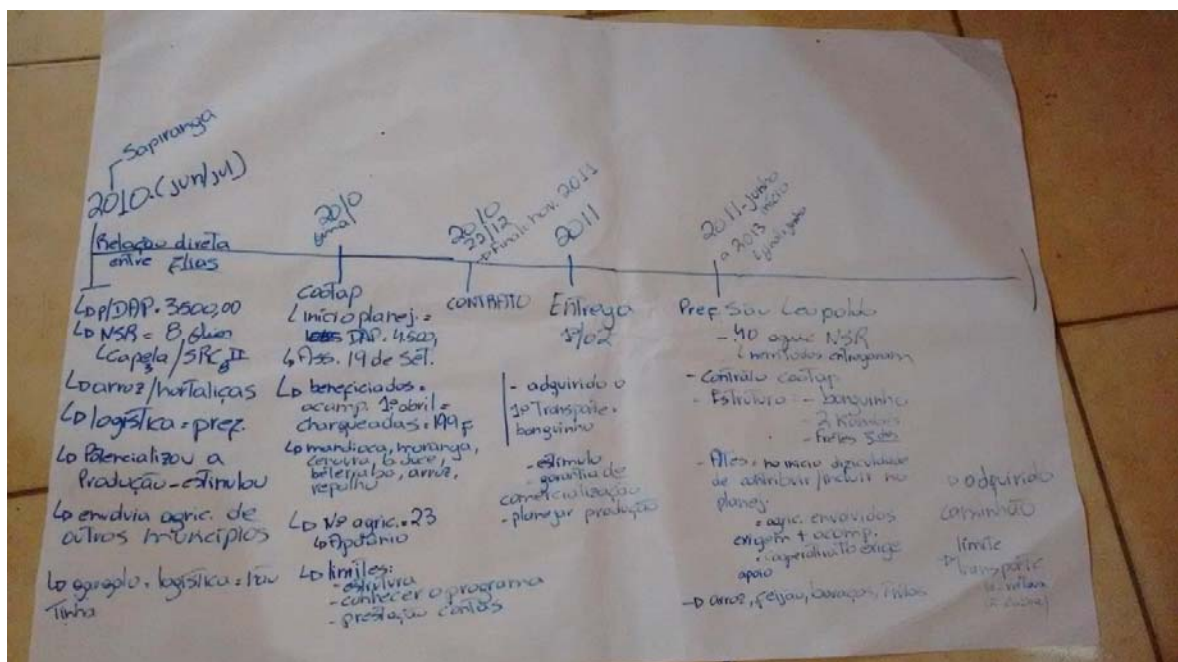 Sapiranga
2010 (jun/jul)
Relação direta
entre Elias
p/DAP. 3500,00
NSR = 8,
Capela /
arroz/hortaliças
logística = pref.
Potencializou a
Produção - estimulou
envolvia agric. de
outros municípios
logística =
Tinha
2010
Cootap
início planej. =
DAP. 4.500,
Ass. 19 de Set.
beneficiados =
acamp. 1º abril =
charqueadas = 199 F
mandioca, moranga,
cenoura, b. doce,
beterraba, arroz,
repolho
Nº agric. = 23
Apolônio
limites:
- estrutura
- conhecer o programa
- prestação contas
2010
22/12
Final: nov. 2011
CONTRATO
2011
Entrega
1º/02
- adquirido o
1º Transporte =
banguinho
- estímulo
- garantia de
comercialização
- planejar produção
2011 - junho
a 2013 início
Pref. São Leopoldo
- 40 agric NSR
entregaram
- Contrato cootap
- Estrutura - banguinho
- 2
- Fretes
- no início dificuldade
de contribuir/incluir no
planej.
= agric. envolvidos
exigem + acomp.
exige
apoio
arroz, feijão,
adquirido
caminhão
limite
transporte